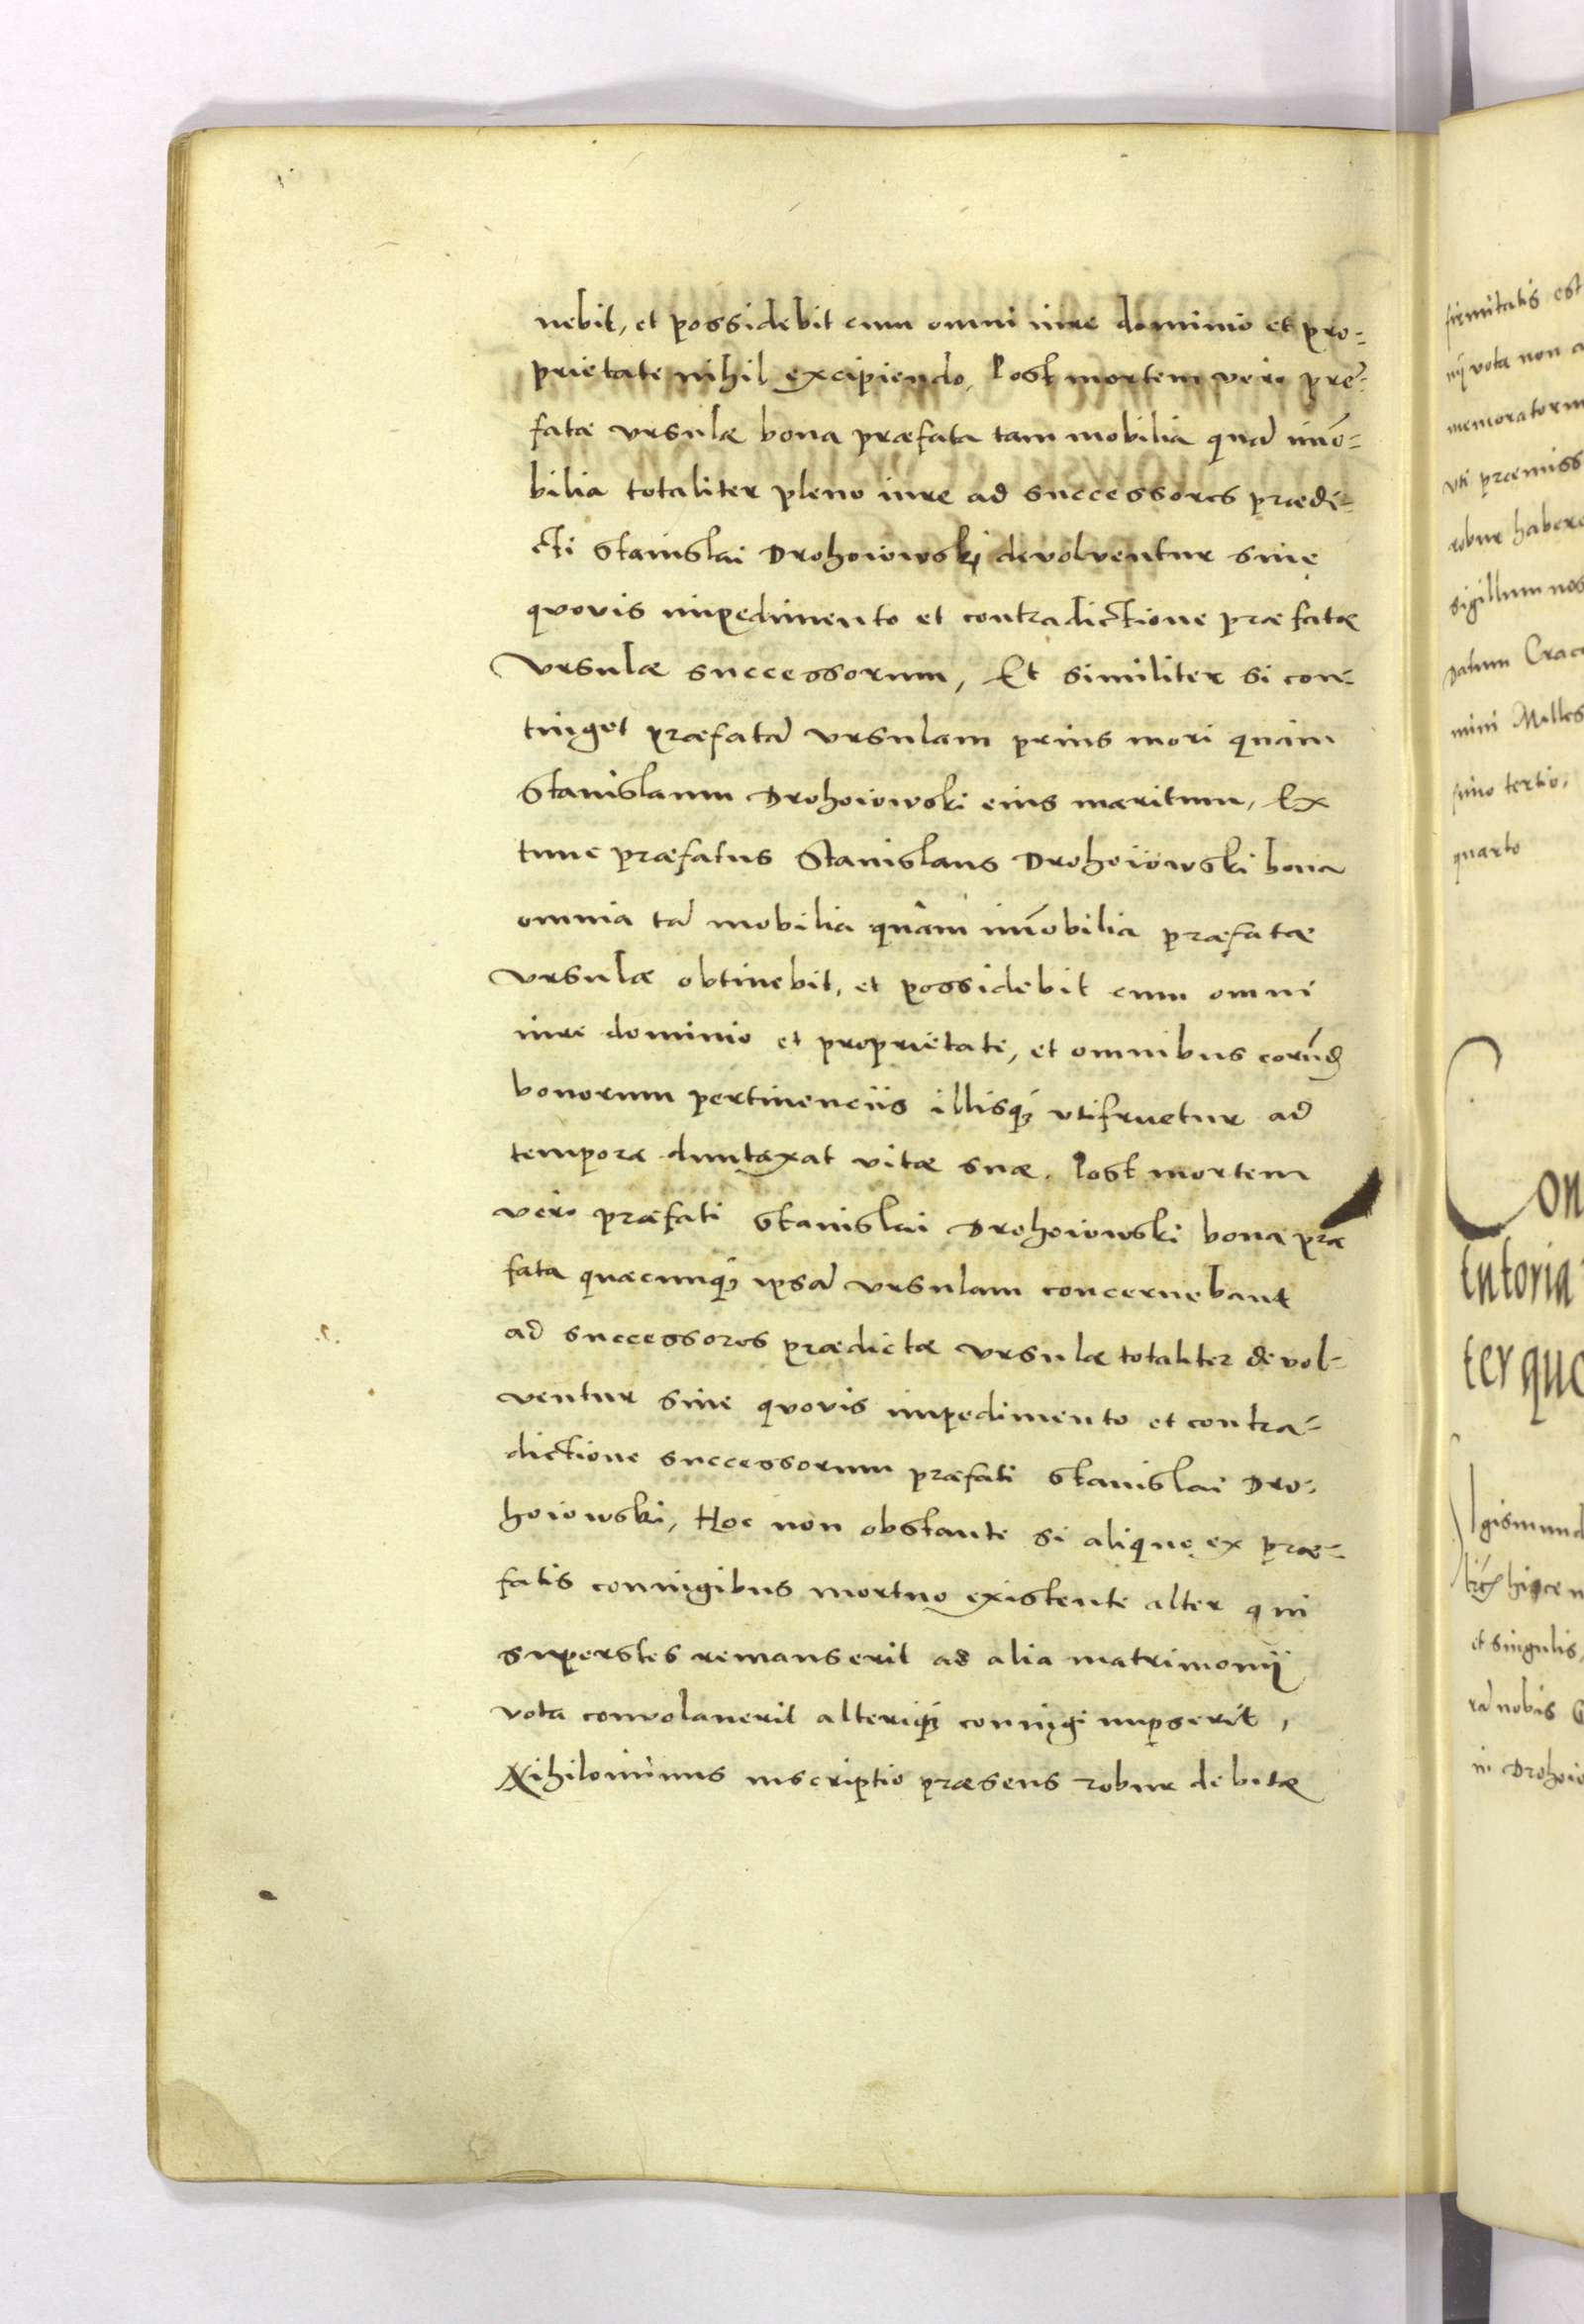 nebit, et possidebit cum omni iure dominio et pro=
prietate nihil excipiendo. Post mortem vero pre=
fatæ Vrsulæ bona præfata tam mobilia quã im̃o=
bilia totaliter pleno iure ad successores prædi=
cti Stanislai Drohoiowski devolventur sine
quovis impedimento et contradictione præfatæ
Vrsulæ successorum, Et similiter si con=
tinget præfatã Vrsulam prius mori quàm
Stanislaum Drohoiowski eius maritum, Ex
tunc præfatus Stanislaus Drohoiowski bona
omnia tã mobilia quàm im̃obilia præfatæ
Vrsulæ obtinebit, et possidebit cum omni
iure dominio et proprietate, et omnibus eorũd
bonorum pertinenciis illisq; utifruetur ad
tempora duntaxat vitæ suæ. Post mortem
vero præfati Stanislai Drohoiowski bona præ
fata quæcunq; ipsã Vrsulam concernebant
ad successores prædictæ Vrsulæ totaliter devol=
ventur sine quovis impedimento et contra=
dictione successorum præfati Stanislai Dro=
hoiowski, Hoc non obstante si aliquo ex præ=
fatis coniugibus mortuo existente alter qui
superstes remanserit ad alia matrimonij
vota convolaverit alteriq; coniugi nupserit,
Nihilominus inscriptio præsens robur debitæ
firmitatis est
nij vota non
memoratorum
vti præmiss
robur habere
sigillum nos
Datum Crac
mini Milles
simo tertio,
quarto
Con
tutoria
ter quo
Igismund
hisce
et singulis,
rã nobis G
in Drohoio